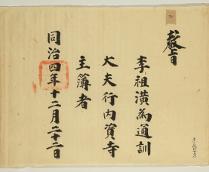 敎旨
李祖潢為通訓
大夫行內資寺
主簿者
同治四年十二月二十二日